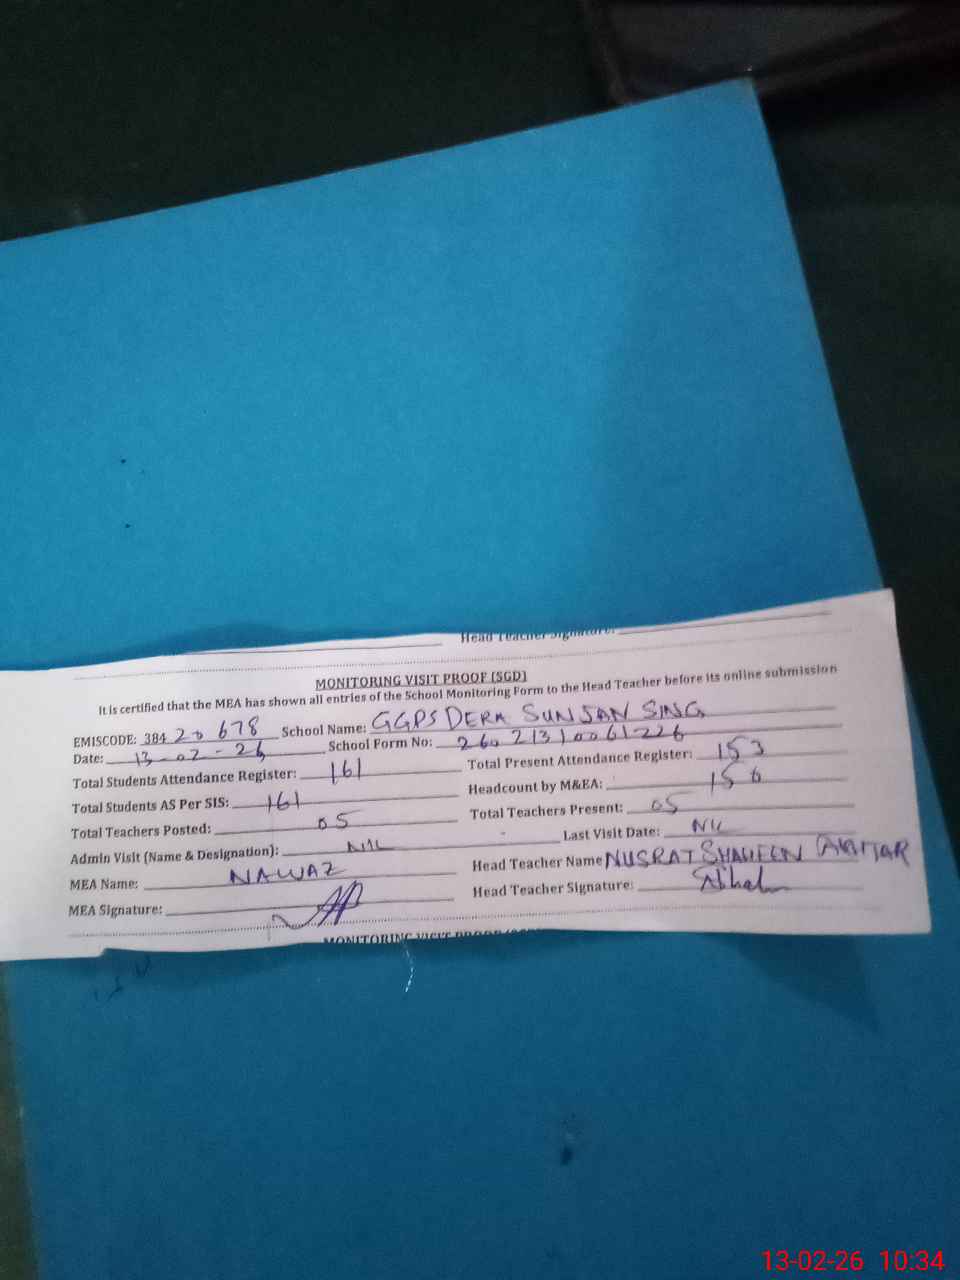 Head Teacher Signature:
MONITORING VISIT PROOF (SGD)
It is certified that the MEA has shown all entries of the School Monitoring Form to the Head Teacher before its online submission
EMISCODE: 384 20 678 School Name: GGPS DERA SUNJAN SING
Date: 13-02-26 School Form No: 260 213 1006 1226
Total Students Attendance Register: 161 Total Present Attendance Register: 153
Total Students AS Per SIS: 161 Headcount by M&EA: 156
Total Teachers Posted: 05 Total Teachers Present: 05
Admin Visit (Name & Designation): NIL Last Visit Date: NIL
MEA Name: NAWAZ Head Teacher Name NUSRAT SHAHEEN AKHTAR
MEA Signature: Head Teacher Signature:
MONITORING VISIT PROOF
13-02-26 10:34